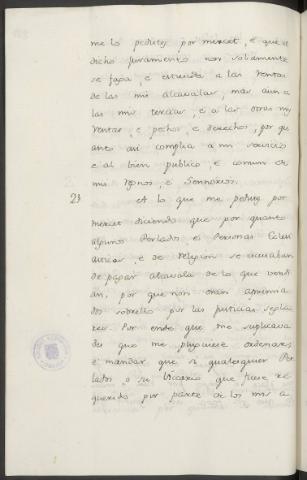 me lo pedistes por mercet, e que el
dicho juramento non solamente
se faga, e estienda a las rentas
de las mis alcavalas, mas aun a
las mis tercias, e a las otras mis
rentas, e pechos, e derechos, por qu
anto asi complia a mi servicio
e al bien publico, e comun de
mis Regnos, e Sennorios.
23 A lo que me pedistes por
mercet diciendo que por quanto
algunos Perlados e Personas Ecless
iasticas, e de Religion se escusaban
de pagar alcavala de lo que vendi
an, por que non eran apremia
dos sobrello por las justicias segla
res. Por ende que me suplicava
des que me pluguiese ordenar
e mandar que si qualesquier Per
lados o su Vicario que fuere re
querido por parte de los mis a